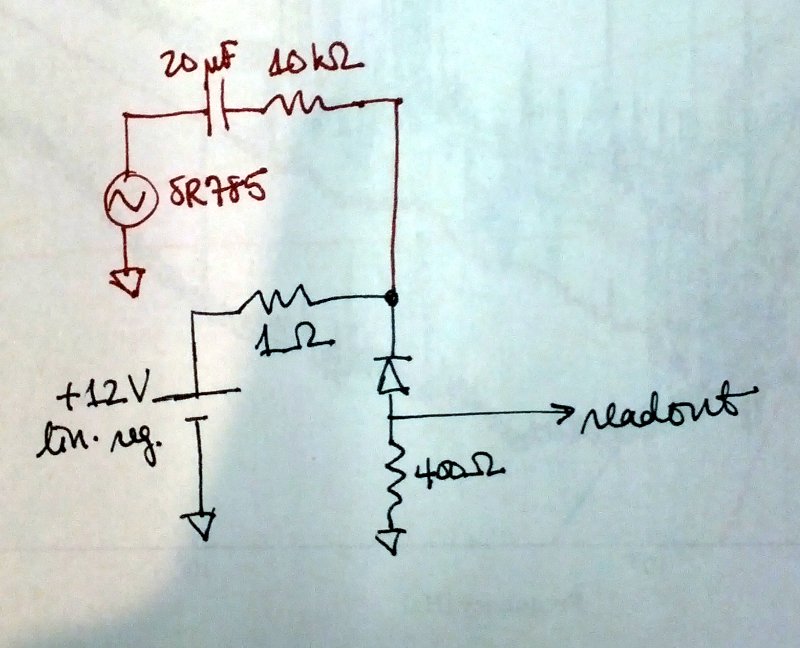 20 µF
10 kΩ
SR785
1Ω
+12V
lin. reg.
readout
400Ω